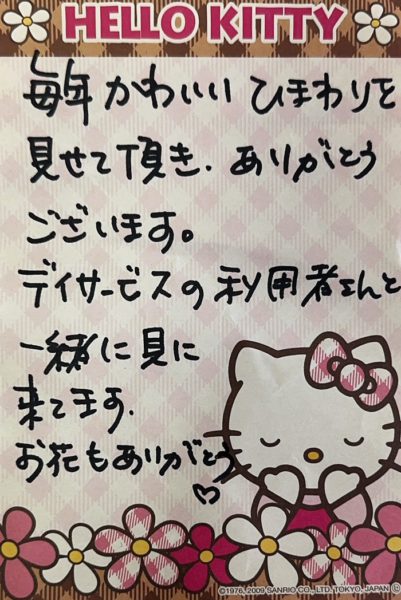 HELLO KITTY
毎年かわいいひまわりを
見せて頂き、ありがとう
ございます。
デイサービスの利用者さんと
一緒に見に
来てます、
お花もありがとう
♡
©1976, 2009 SANRIO CO., LTD. TOKYO, JAPAN